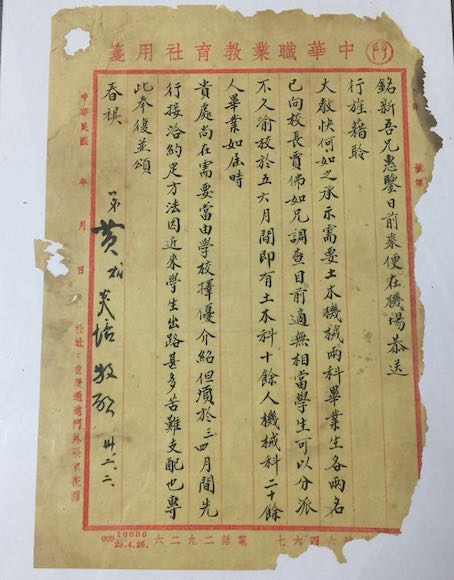 中華職業教育社用箋
銘新吾兄惠鑒日前乘便在機場恭送
行旌藉聆
大教快何如之承示需要土木機械兩科畢業生各兩名
已向校長賈佛如兄調查目前適無相當學生可以分派
不久渝校於五六月間即有土木科十餘人機械科二十餘
人畢業如屆時
貴處尚在需要當由學校擇優介紹但須於三四月間先
行接洽約定方法因近來學生出路甚多苦難支配也專
此奉復並頌
春祺
弟黃炎培敬啟 卅二.二.
中華民國 年 月 日
社址：重慶通遠門外張家花園
六四六七 電話二九二六
009 10000
29.4.26.